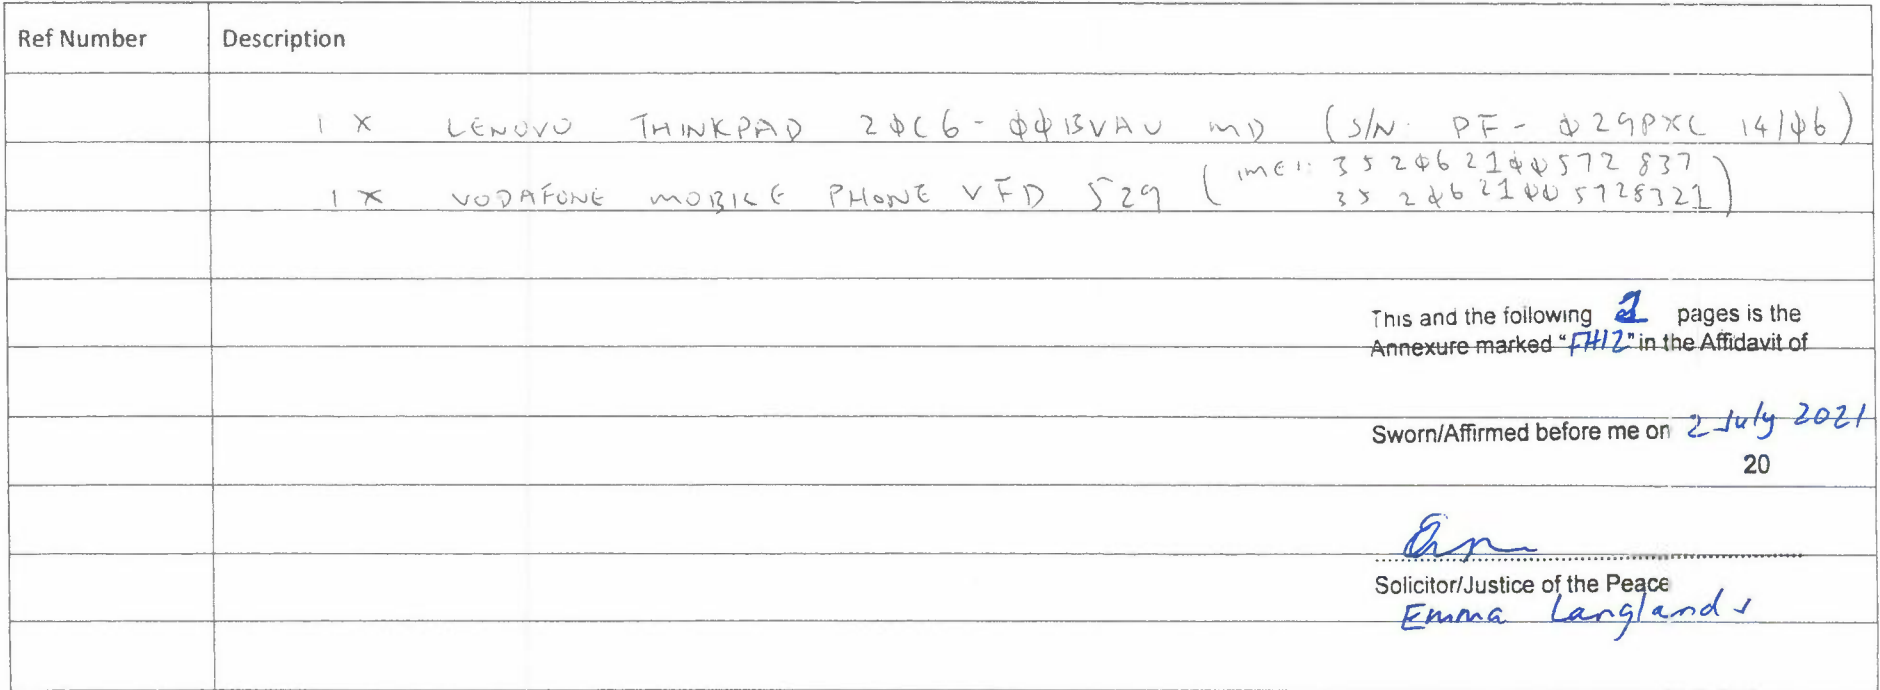 Ref Number Description
1 X LENOVO THINKPAD 2ØC6-ØØBVAU MD (S/N. PF-Ø29PXC 14/Ø6)
1 X VODAFONE MOBILE PHONE VFD 529 (IMEI: 352Ø621ØØ572837
352Ø621ØØ5728321)
This and the following pages is the
Annexure marked "FH12" in the Affidavit of
Sworn/Affirmed before me on 2 July 2021
20
Solicitor/Justice of the Peace
Emma Langlands